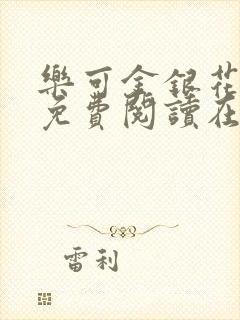 樂可金銀花
免費閱讀在
雷利